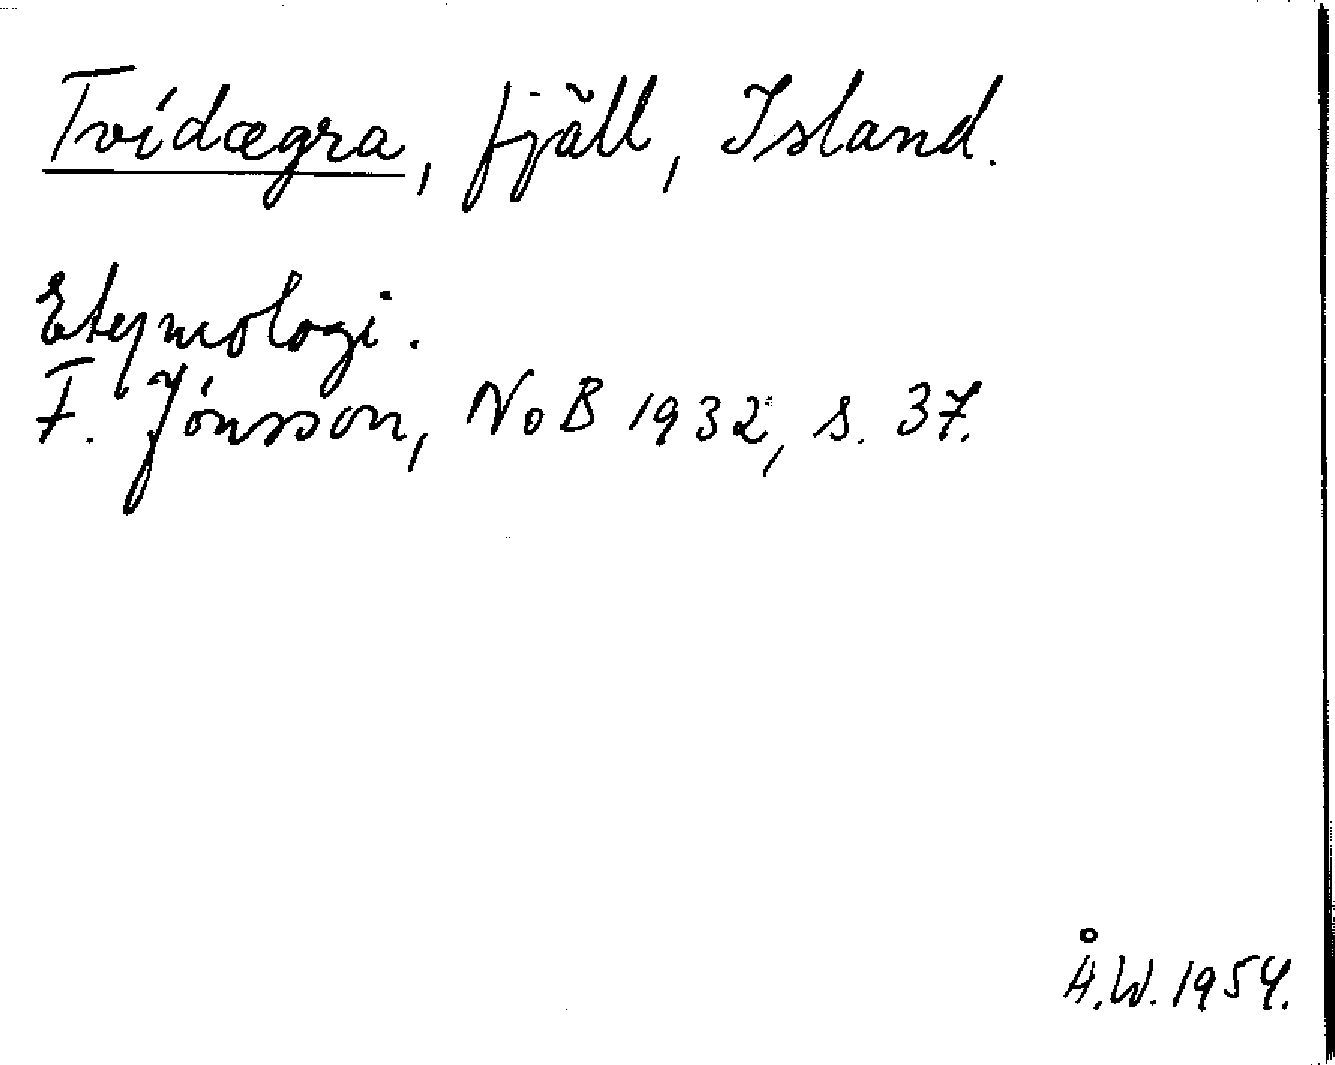 Tvídægra, fjäll, Island.
Etymologi.
F. Jónsson, NoB 1932, s. 37.
Å.W. 1954.